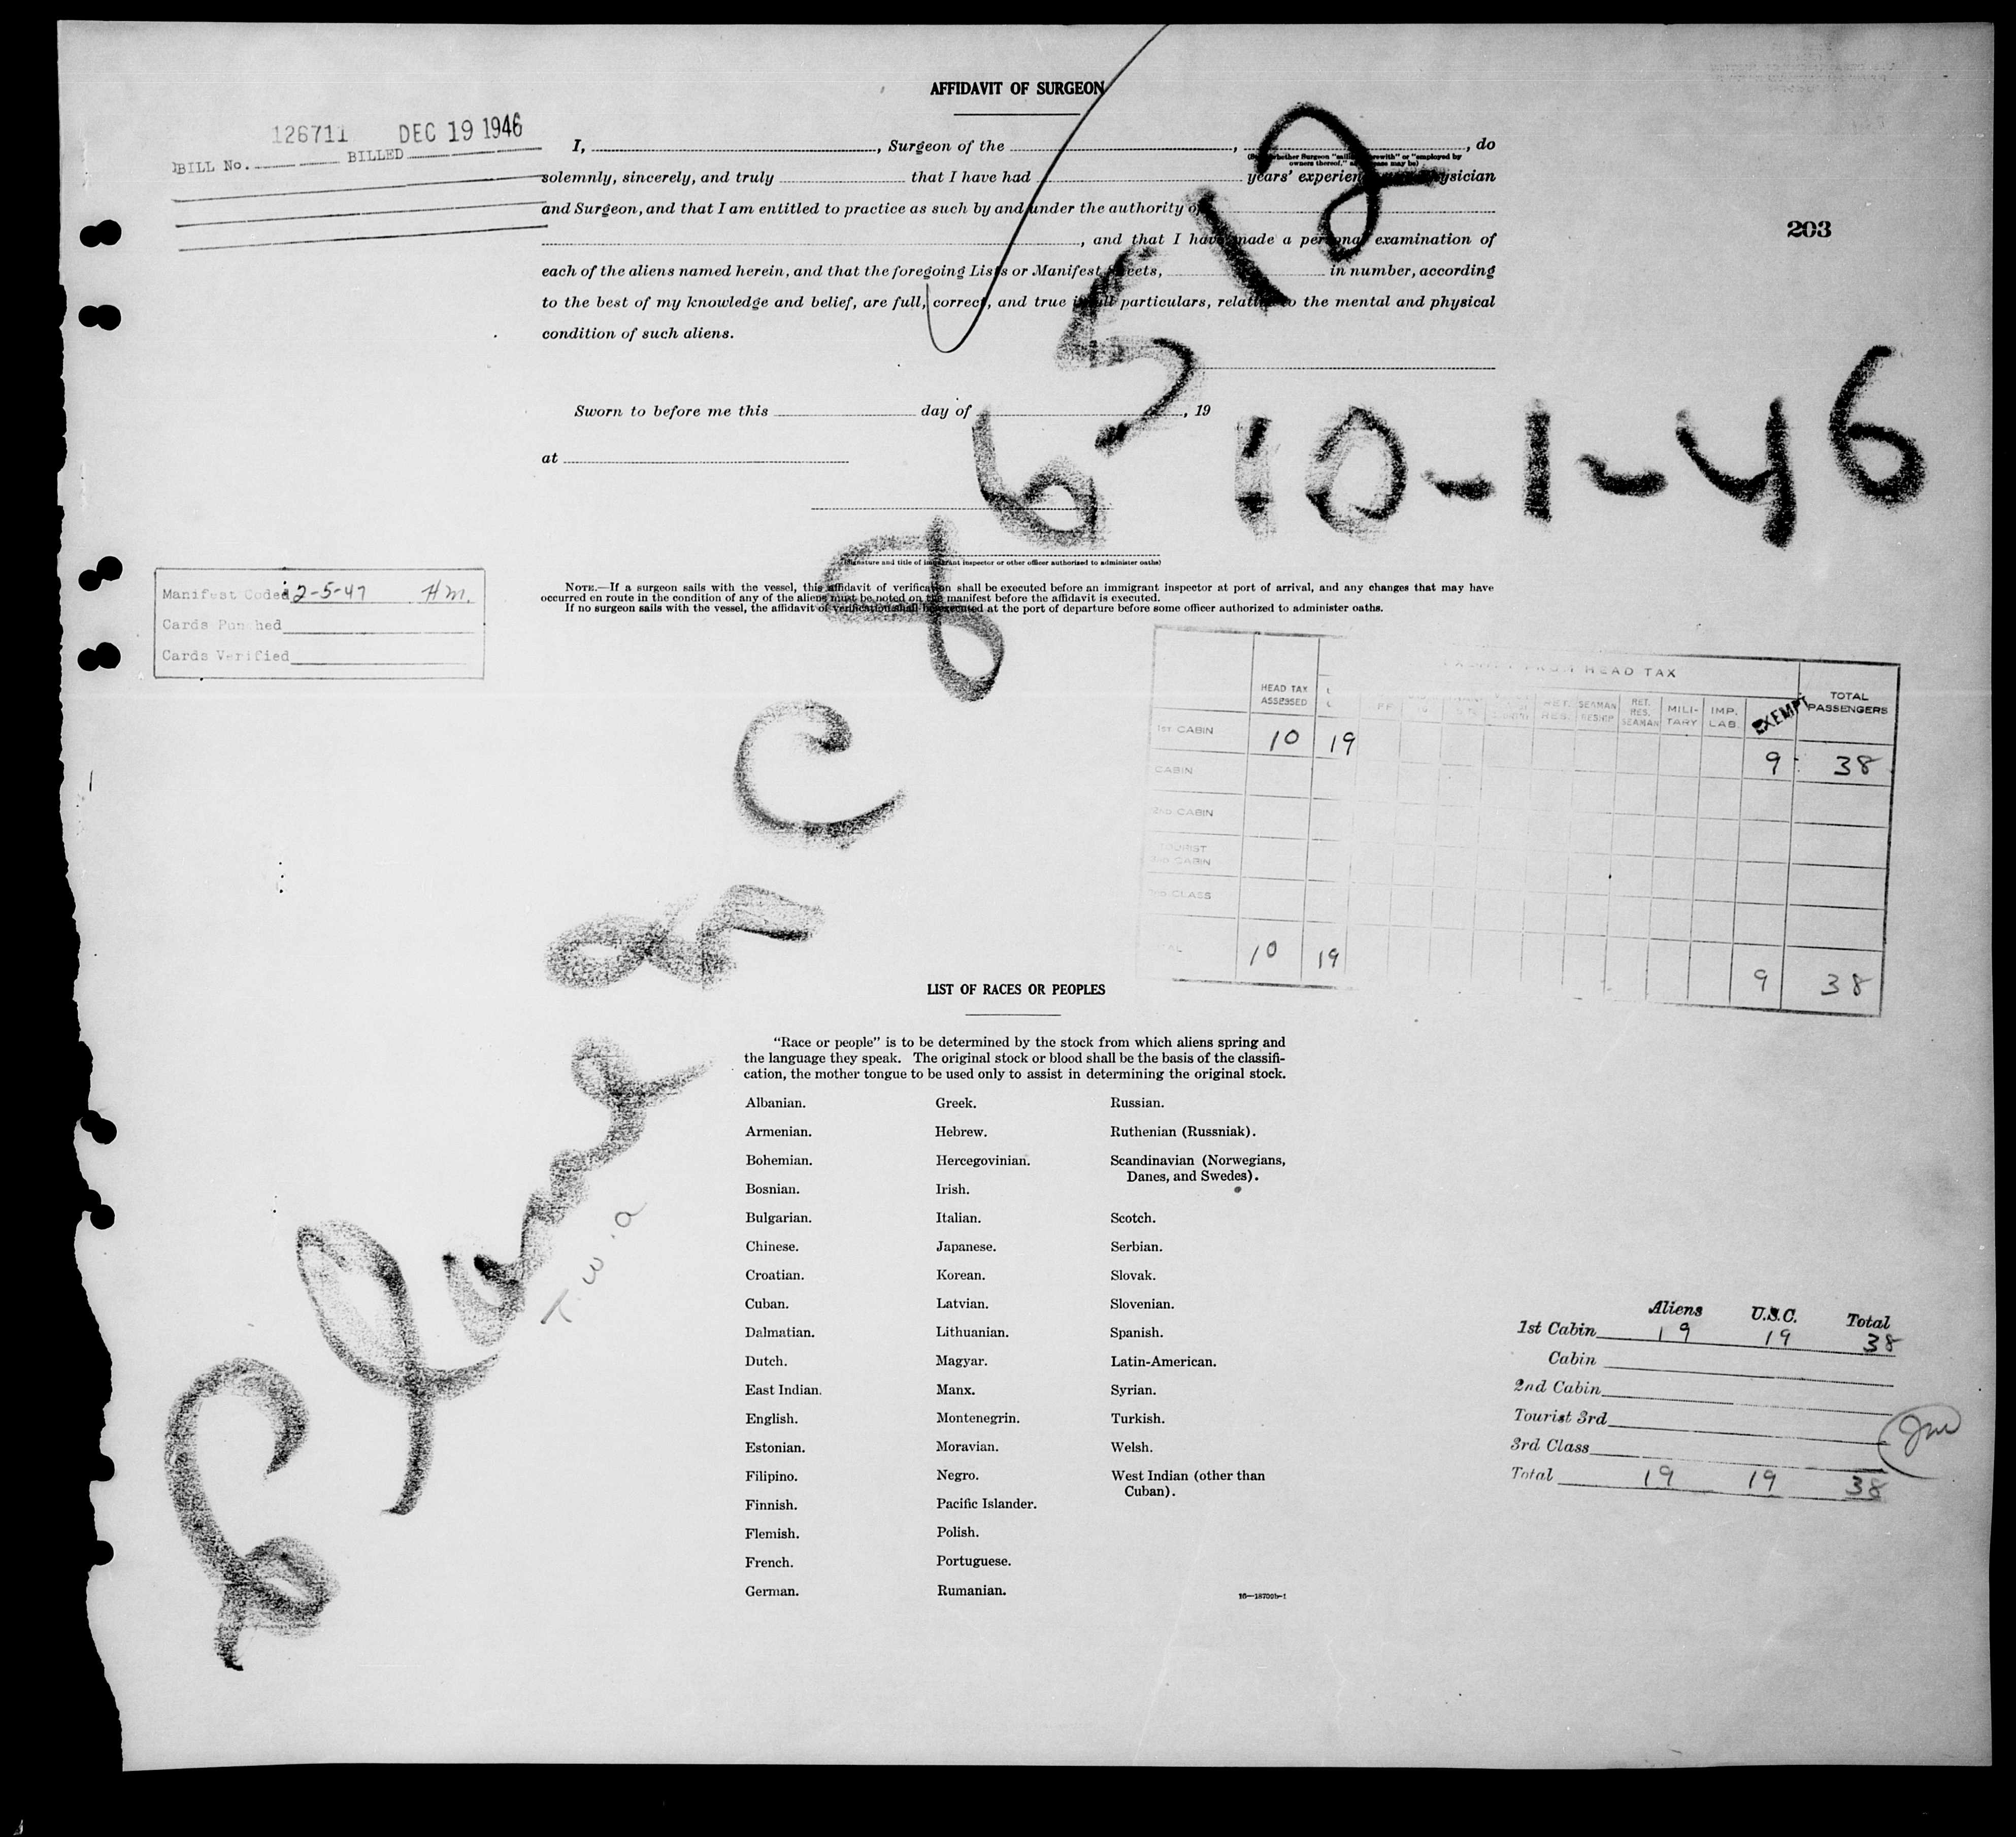 AFFIDAVIT OF SURGEON
126711 DEC 19 1946
BILL No. BILLED
I, , Surgeon of the , , do
owners thereof," as case may be)
solemnly, sincerely, and truly that I have had years' experience physician
and Surgeon, and that I am entitled to practice as such by and under the authority of
, and that I have made a personal examination of
each of the aliens named herein, and that the foregoing Lists or Manifest Sheets, in number, according
to the best of my knowledge and belief, are full, correct, and true in all particulars, relative to the mental and physical
condition of such aliens.
203
Sworn to before me this day of , 19
at
10-1-46
(Signature and title of immigrant inspector or other officer authorized to administer oaths)
NOTE.—If a surgeon sails with the vessel, this affidavit of verification shall be executed before an immigrant inspector at port of arrival, and any changes that may have
occurred en route in the condition of any of the aliens must be noted on the manifest before the affidavit is executed.
If no surgeon sails with the vessel, the affidavit of verification shall be executed at the port of departure before some officer authorized to administer oaths.
Manifest Coded 2-5-47 Hm.
Cards Punched
Cards Verified
Plane NC 86512
T.W.A
HEAD TAX
HEAD TAX ASSESSED RET. RES. SEAMAN RESHIP RET. RES. SEAMAN MILITARY IMP. LAB. EXEMPT TOTAL PASSENGERS
1ST CABIN 10 19 9 38
CABIN
2ND CABIN
TOURIST
3RD CABIN
3RD CLASS
10 19 9 38
LIST OF RACES OR PEOPLES
"Race or people" is to be determined by the stock from which aliens spring and
the language they speak. The original stock or blood shall be the basis of the classifi-
cation, the mother tongue to be used only to assist in determining the original stock.
Albanian. Greek. Russian.
Armenian. Hebrew. Ruthenian (Russniak).
Bohemian. Hercegovinian. Scandinavian (Norwegians,
Danes, and Swedes).
Bosnian. Irish.
Bulgarian. Italian. Scotch.
Chinese. Japanese. Serbian.
Croatian. Korean. Slovak.
Cuban. Latvian. Slovenian.
Dalmatian. Lithuanian. Spanish.
Dutch. Magyar. Latin-American.
East Indian. Manx. Syrian.
English. Montenegrin. Turkish.
Estonian. Moravian. Welsh.
Filipino. Negro. West Indian (other than
Cuban).
Finnish. Pacific Islander.
Flemish. Polish.
French. Portuguese.
German. Rumanian.
16—18709b-1
Aliens U.S.C. Total
1st Cabin 19 19 38
Cabin
2nd Cabin
Tourist 3rd
3rd Class
Total 19 19 38